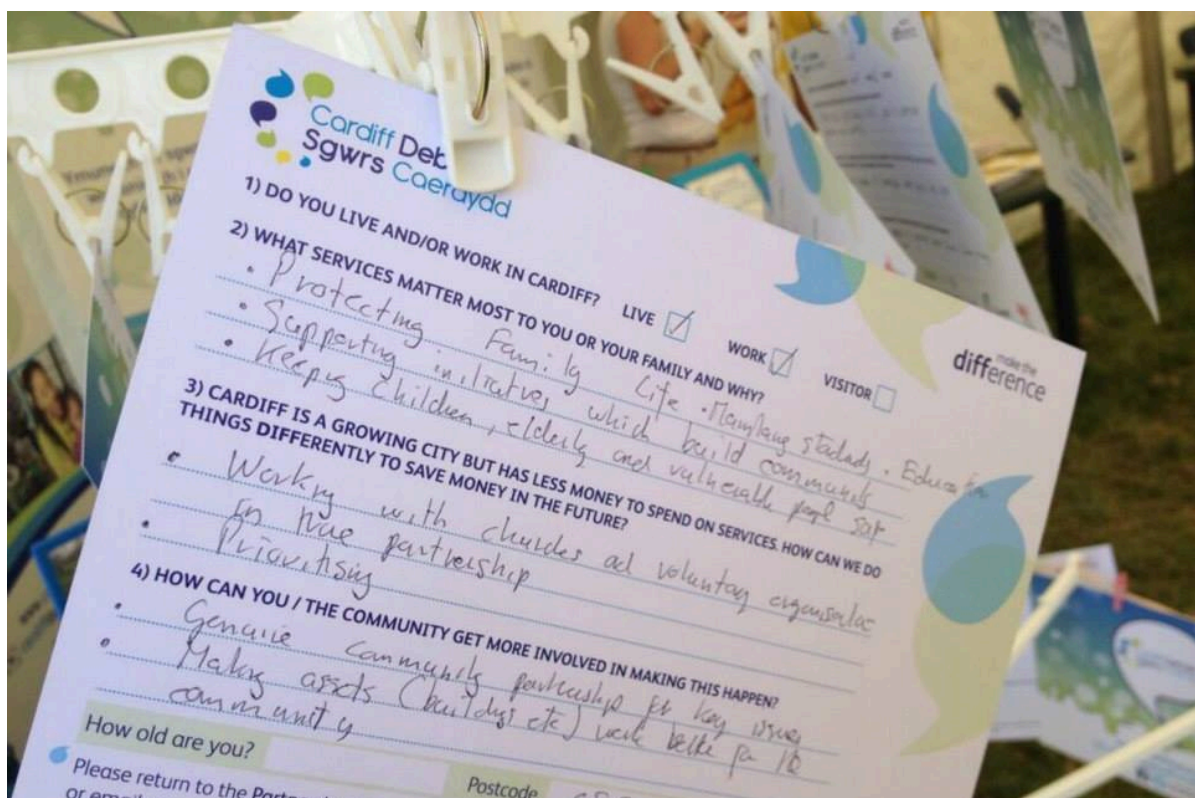 Cardiff Deb
Sgwrs Caerdydd
1) DO YOU LIVE AND/OR WORK IN CARDIFF? LIVE WORK VISITOR
2) WHAT SERVICES MATTER MOST TO YOU OR YOUR FAMILY AND WHY?
• Protecting Family Life • Education
• Supporting initiatives which build community
• Keeping Children, elderly and vulnerable people safe
3) CARDIFF IS A GROWING CITY BUT HAS LESS MONEY TO SPEND ON SERVICES. HOW CAN WE DO
THINGS DIFFERENTLY TO SAVE MONEY IN THE FUTURE?
• Working with churches and voluntary organisations
in true partnership
• Prioritising
4) HOW CAN YOU / THE COMMUNITY GET MORE INVOLVED IN MAKING THIS HAPPEN?
• Genuine Community partnership for key issues
• Making assets (buildings etc) work better for the
community
How old are you?
Postcode
Please return to the
or email
make the
difference